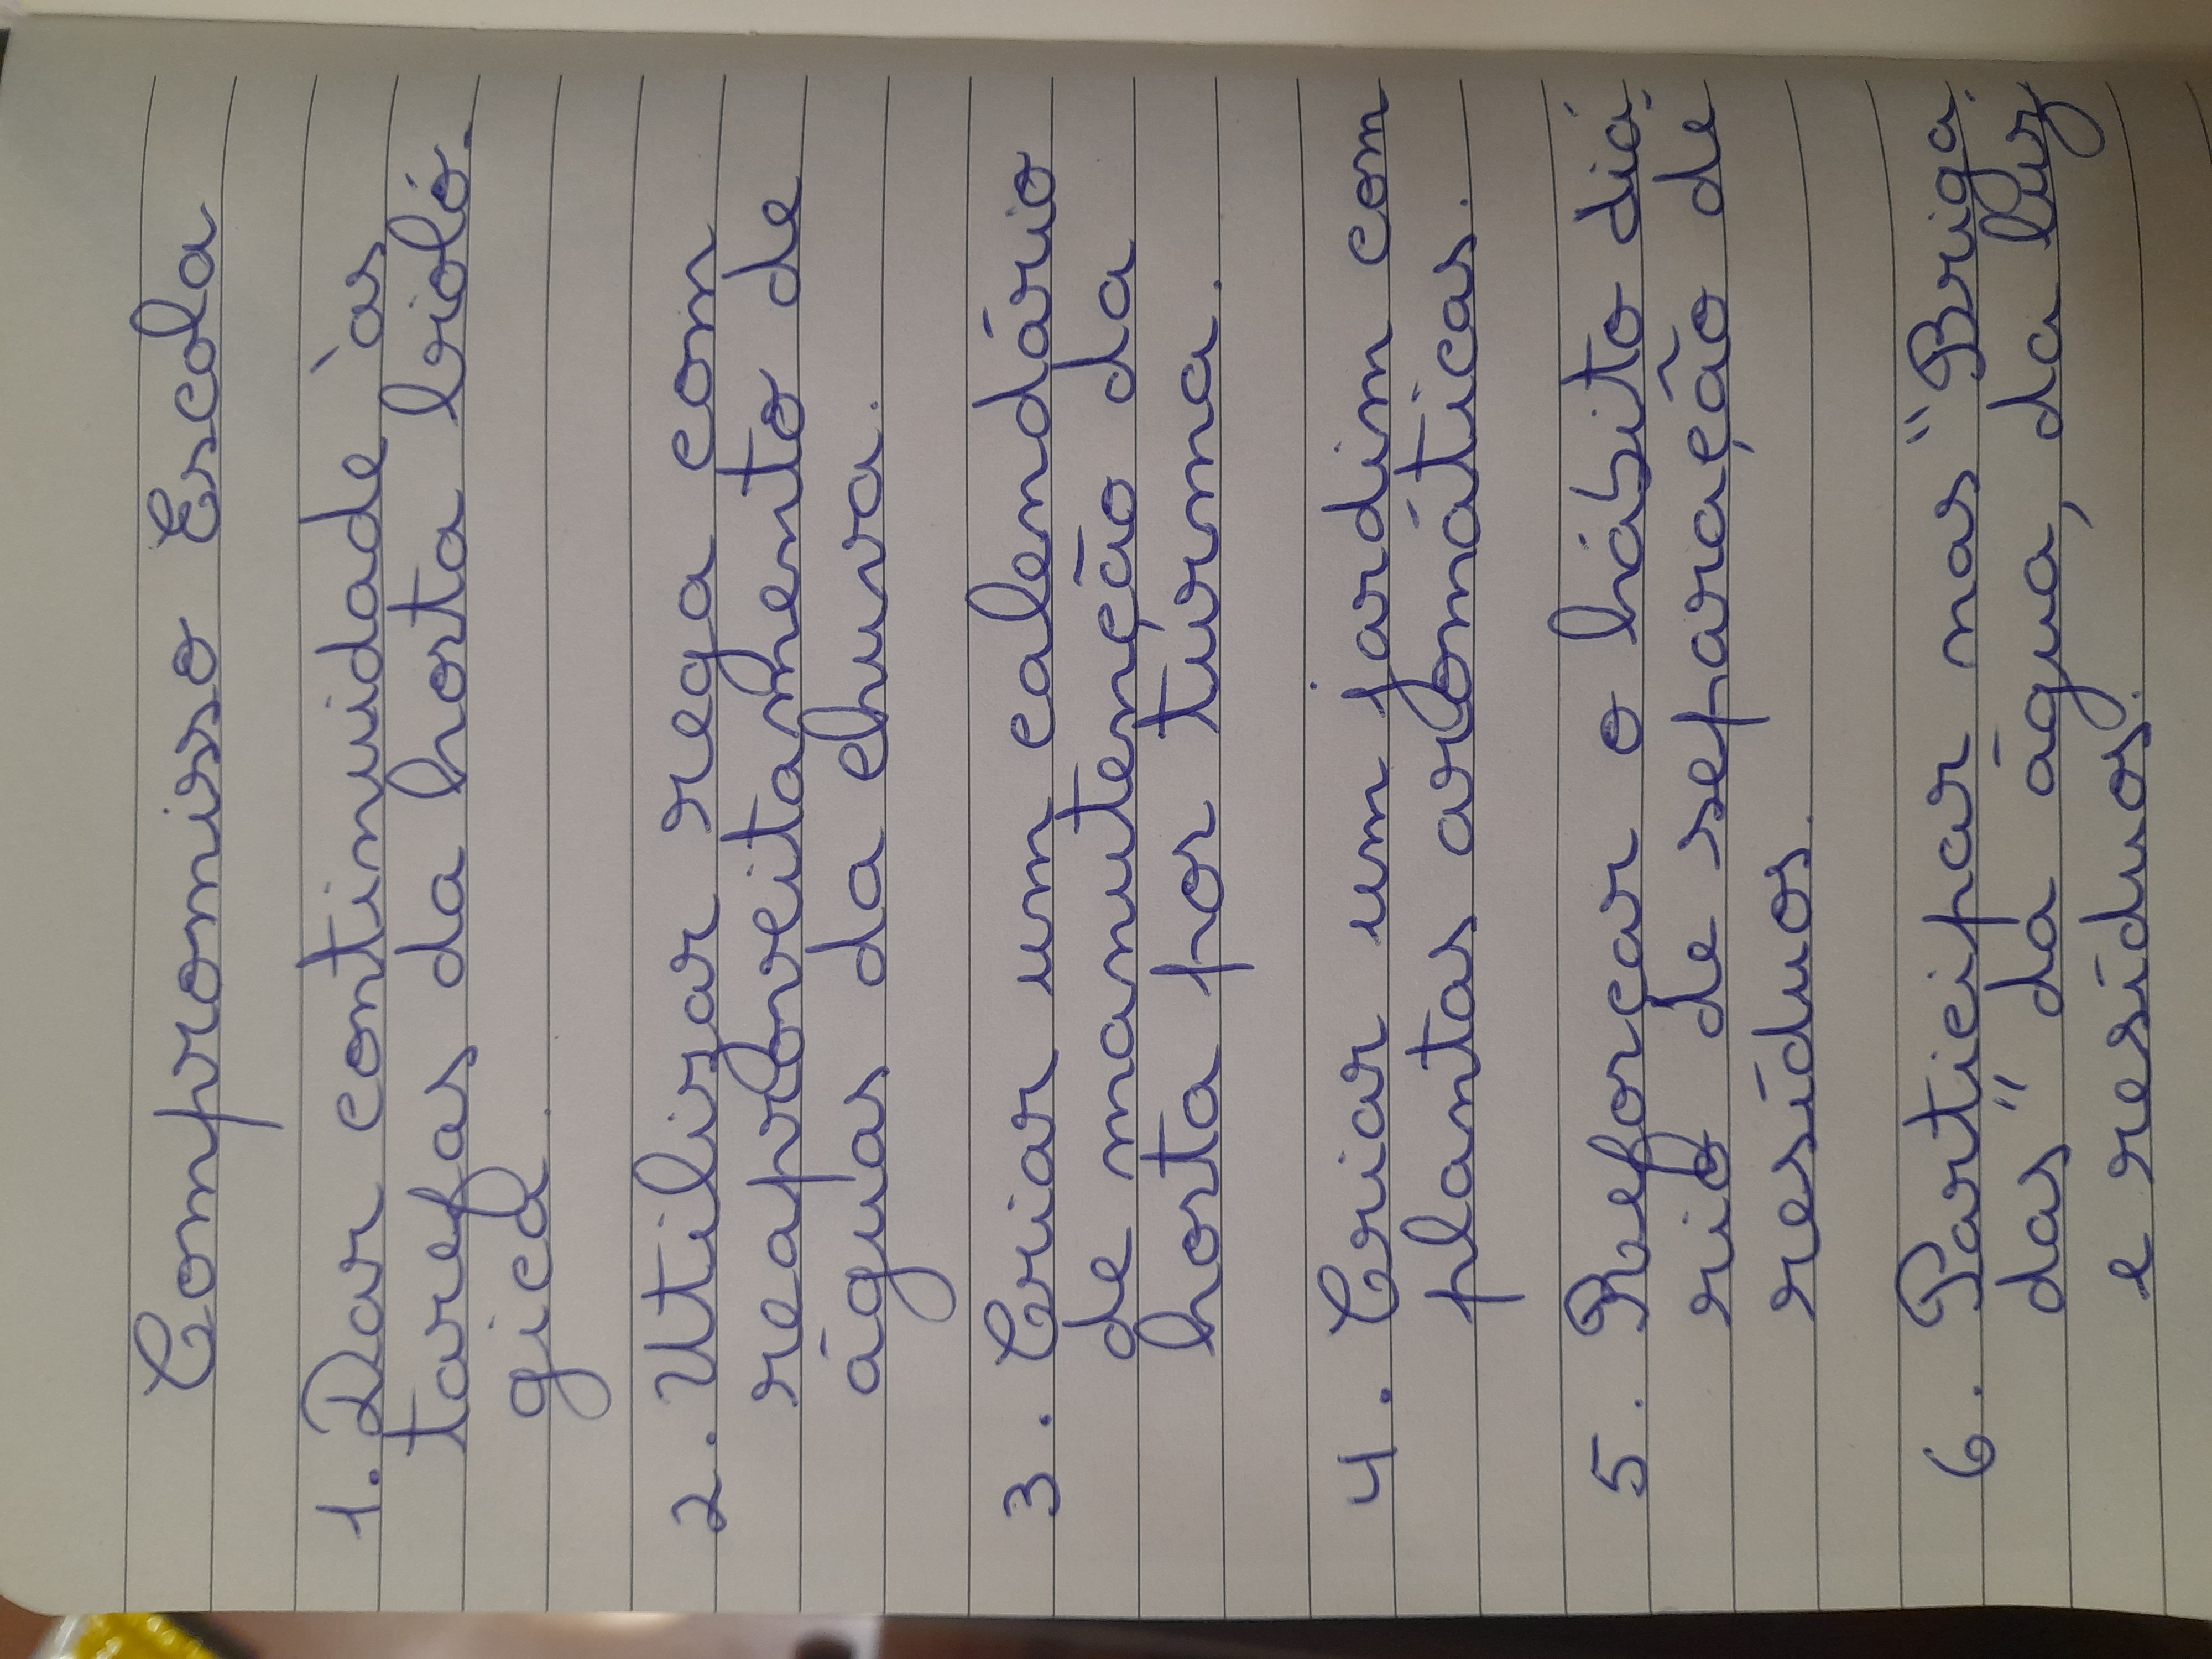 Compromisso Escola
1. Dar continuidade às
tarefas da horta bioló-
gica.
2. Utilizar rega com
reaproveitamento de
águas da chuva.
3. Criar um calendário
de manutenção da
horta por turma.
4. Criar um jardim com
plantas aromáticas.
5. Reforçar o hábito diá-
rio de separação de
resíduos.
6. Participar nas "Briga-
das" da água, da luz
e resíduos.